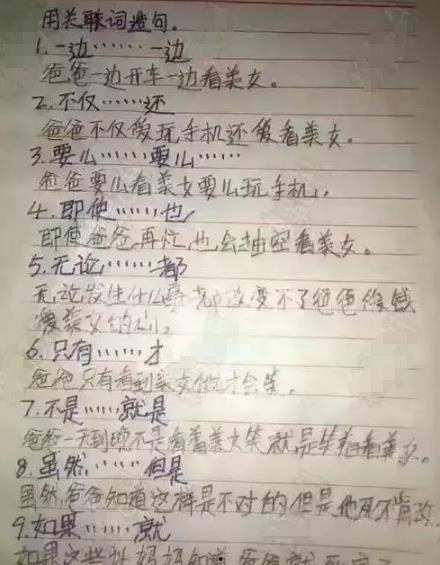 用关联词造句。
1.一边……一边
爸爸一边开车一边看美女。
2.不仅……还
爸爸不仅爱玩手机还爱看美女。
3.要么……要么……
爸爸要么看美女要么玩手机。
4.即使……也
即使爸爸再忙也会抽空看美女。
5.无论……都
无论发生什么事都改变不了爸爸像钱
爱美女的心。
6.只有……才
爸爸只有看到美女他才会笑。
7.不是……就是
爸爸一天到晚不是看着美女笑就是笑着看美女。
8.虽然……但是
虽然爸爸知道这样是不对的但是他死不肯改。
9.如果……就
如果这些让妈妈知道爸爸就死定了